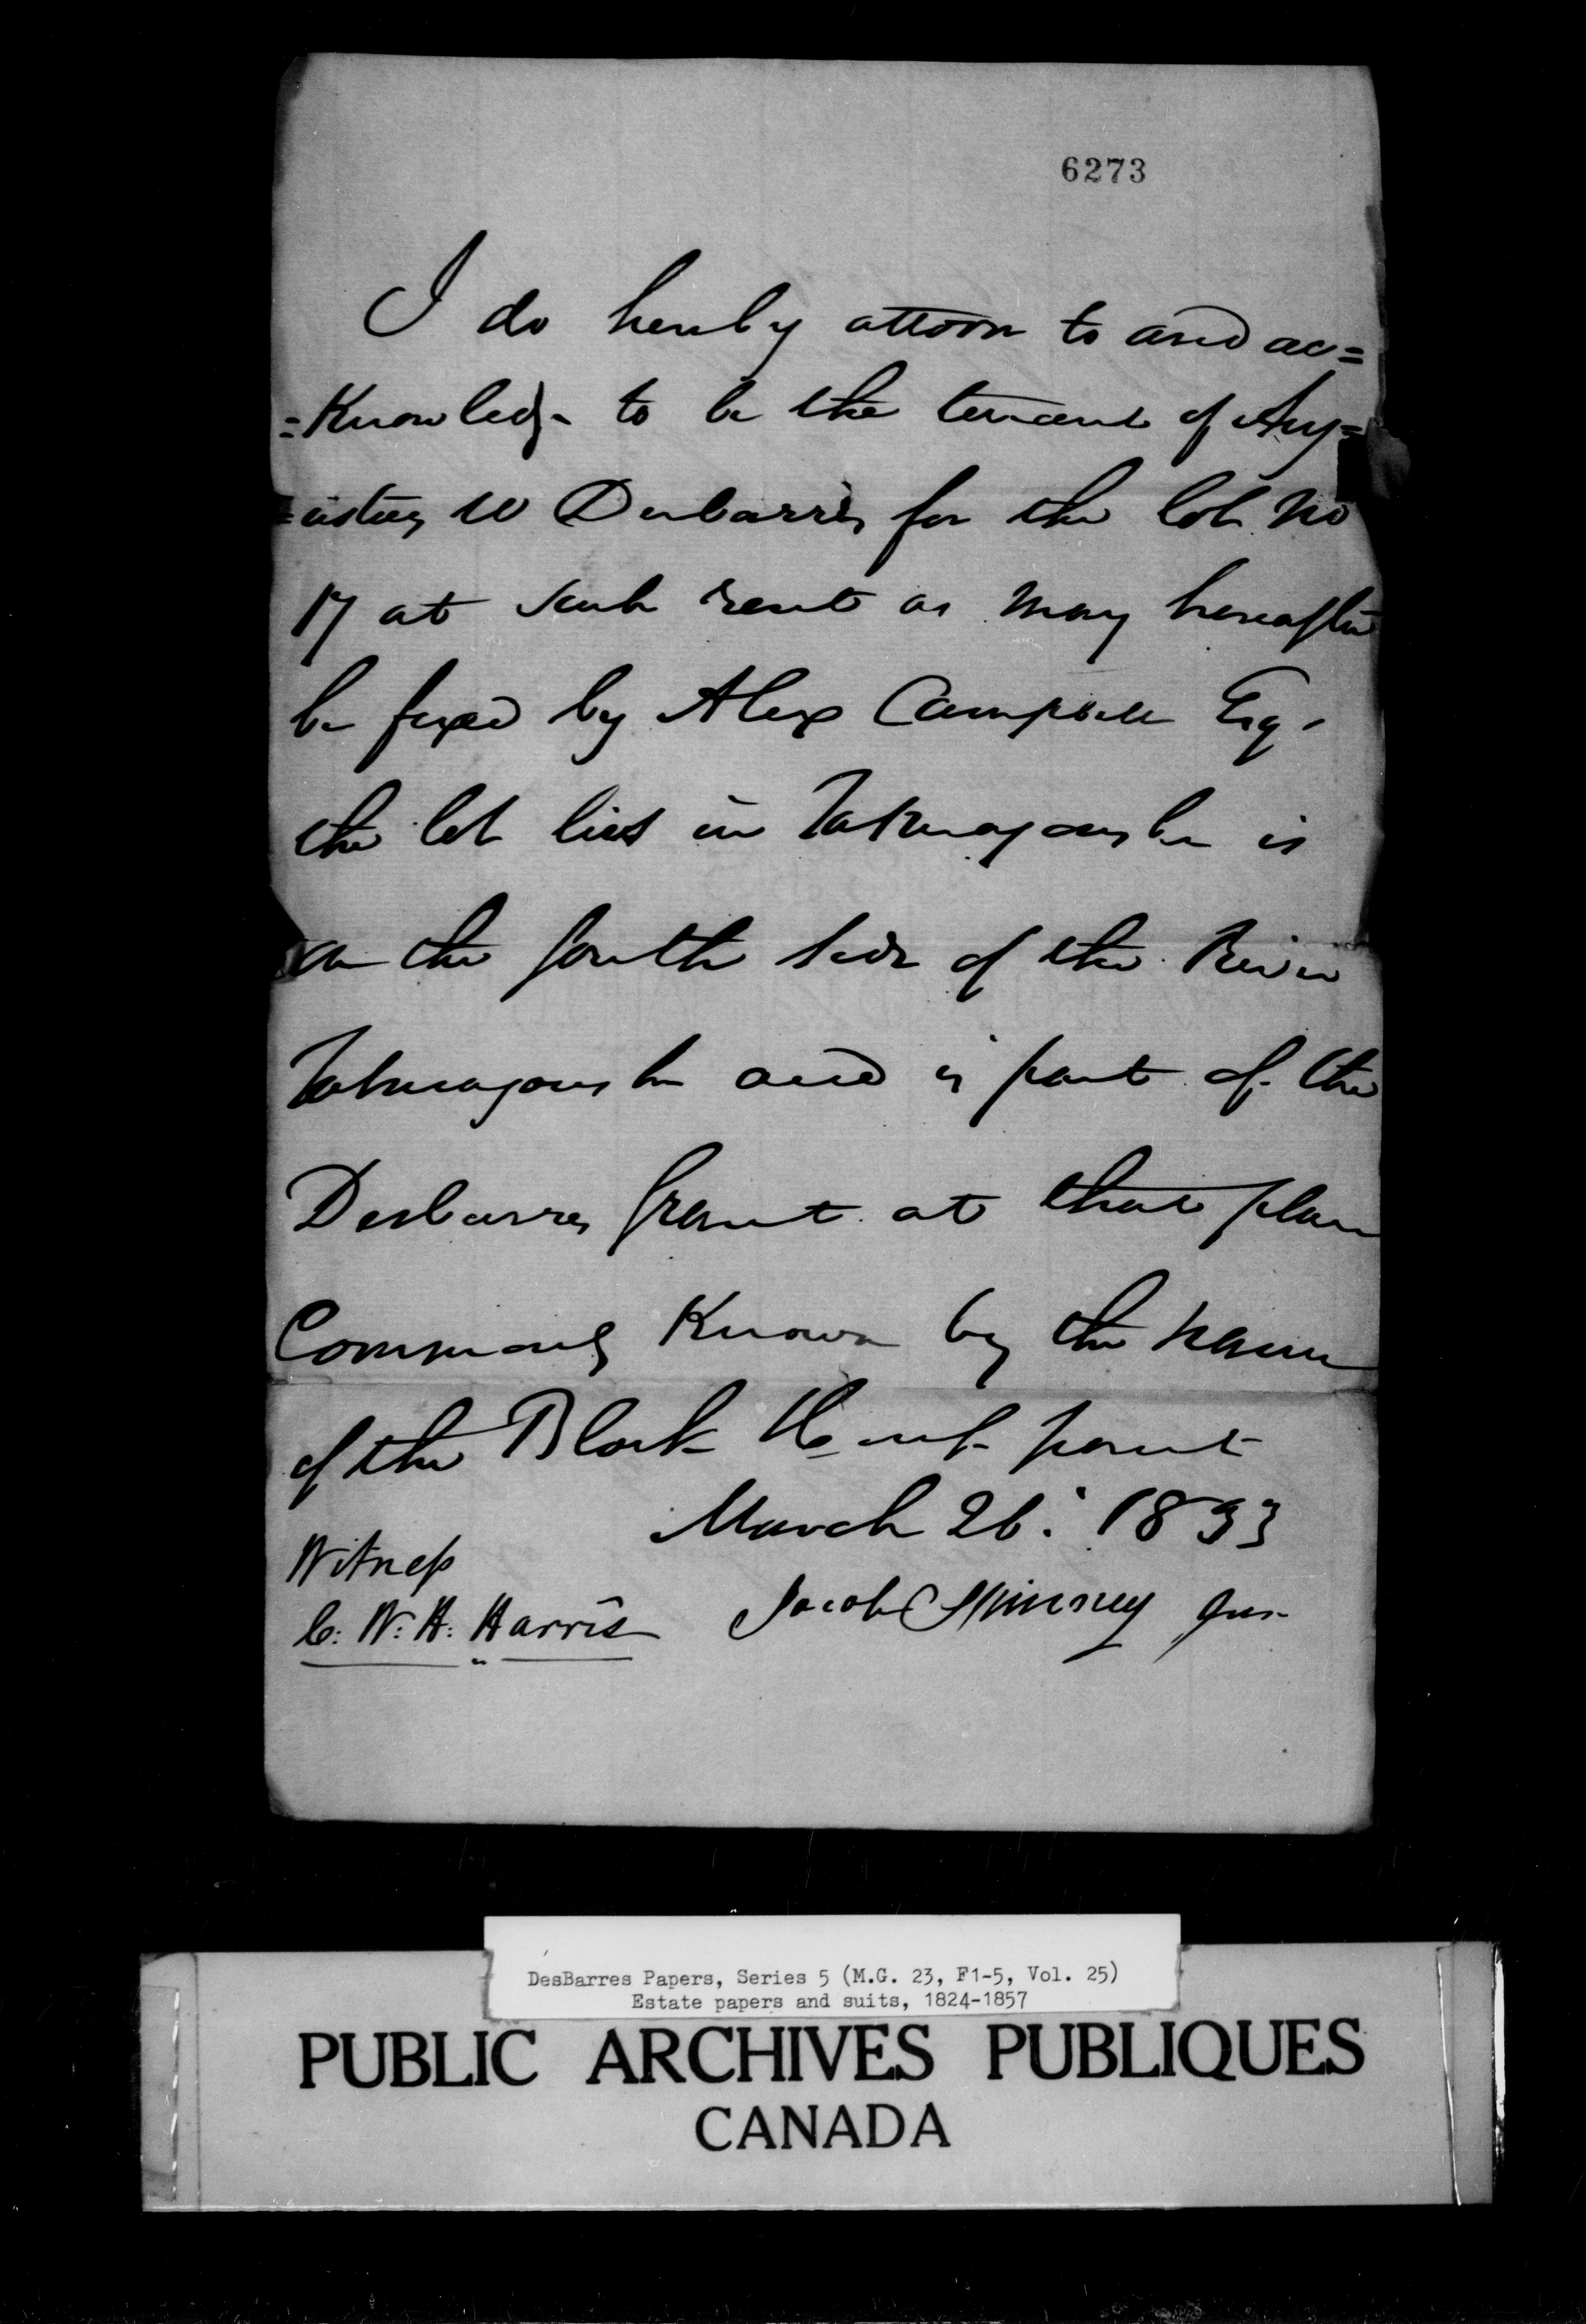 6273
I do hereby attorn to and ac=
=Knowledge to be the tenant of Aug=
=ustus W Desbarres for the lot No
17 at such rent as may hereafter
be fixed by Alex Campbell Esq.
the lot lies in Tatmagoushe is
on the South side of the River
Tatmagoushe and is part of the
Desbarres Grant at that place
Commonly Known by the name
of the Block point
March 26. 1833
Witness
C. W. H. Harris Jacob Jun
DesBarres Papers, Series 5 (M.G. 23, F1-5, Vol. 25)
Estate papers and suits, 1824-1857
PUBLIC ARCHIVES PUBLIQUES
CANADA